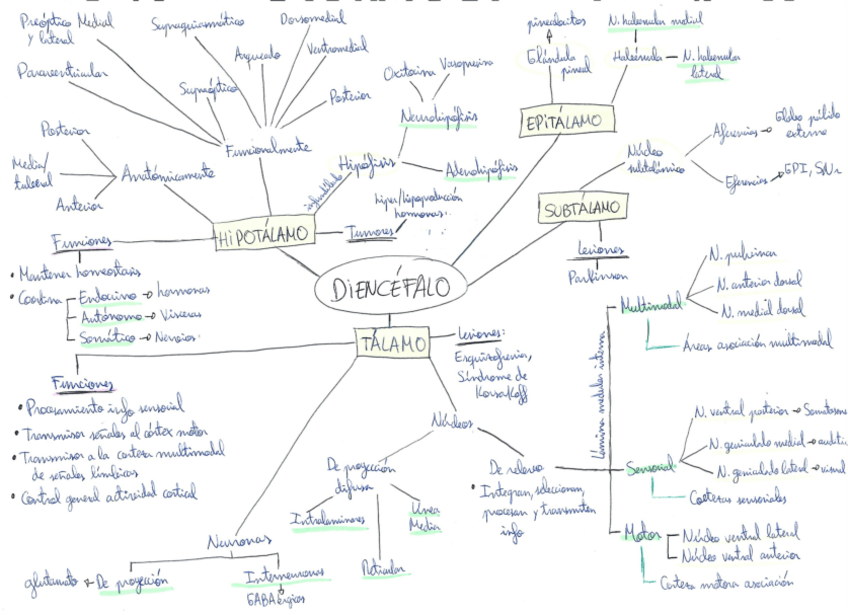 Preóptico Medial
y lateral
Supraquiasmático
Dorsomedial
Ventromedial
Arqueado
Paraventricular
Supraóptico
Posterior
Funcionalmente
Posterior
Medial/
tuberal
Anterior
Anatómicamente
Oxitocina
Vasopresina
Neurohipófisis
Hipófisis
Adenohipófisis
infundíbulo
hiper/hipoproducción
hormonas
HIPOTÁLAMO
Tumores
Funciones
• Mantener homeostasis
• Coordina
Endocrino → hormonas
Autónomo → Vísceras
Somático → Nervios
pinealocitos
Glándula
pineal
N. habenular medial
Habénula
N. habenular
lateral
EPITÁLAMO
Núcleo
subtalámico
Aferencias → Globo pálido
externo
Eferencias → GPI, SNr
SUBTÁLAMO
Lesiones
Parkinson
DIENCÉFALO
TÁLAMO
Lesiones:
Esquizofrenia,
Síndrome de
Korsakoff
Funciones
• Procesamiento info sensorial
• Transmisor señales al córtex motor
• Transmisor a la corteza multimodal
de señales límbicas
• Control general actividad cortical
Núcleos
De proyección
difusa
Intralaminares
Línea
Media
Reticular
De relevo
• Integran, seleccionan,
procesan y transmiten
info
Lámina medular interna
Multimodal
N. pulvinar
N. anterior dorsal
N. medial dorsal
Áreas asociación multimodal
Sensorial
N. ventral posterior → Somatosens
N. geniculado medial → auditi
N. geniculado lateral → visual
Cortezas sensoriales
Motor
Núcleo ventral lateral
Núcleo ventral anterior
Corteza motora asociación
Neuronas
glutamato ← De proyección
Interneuronas
GABAérgicas